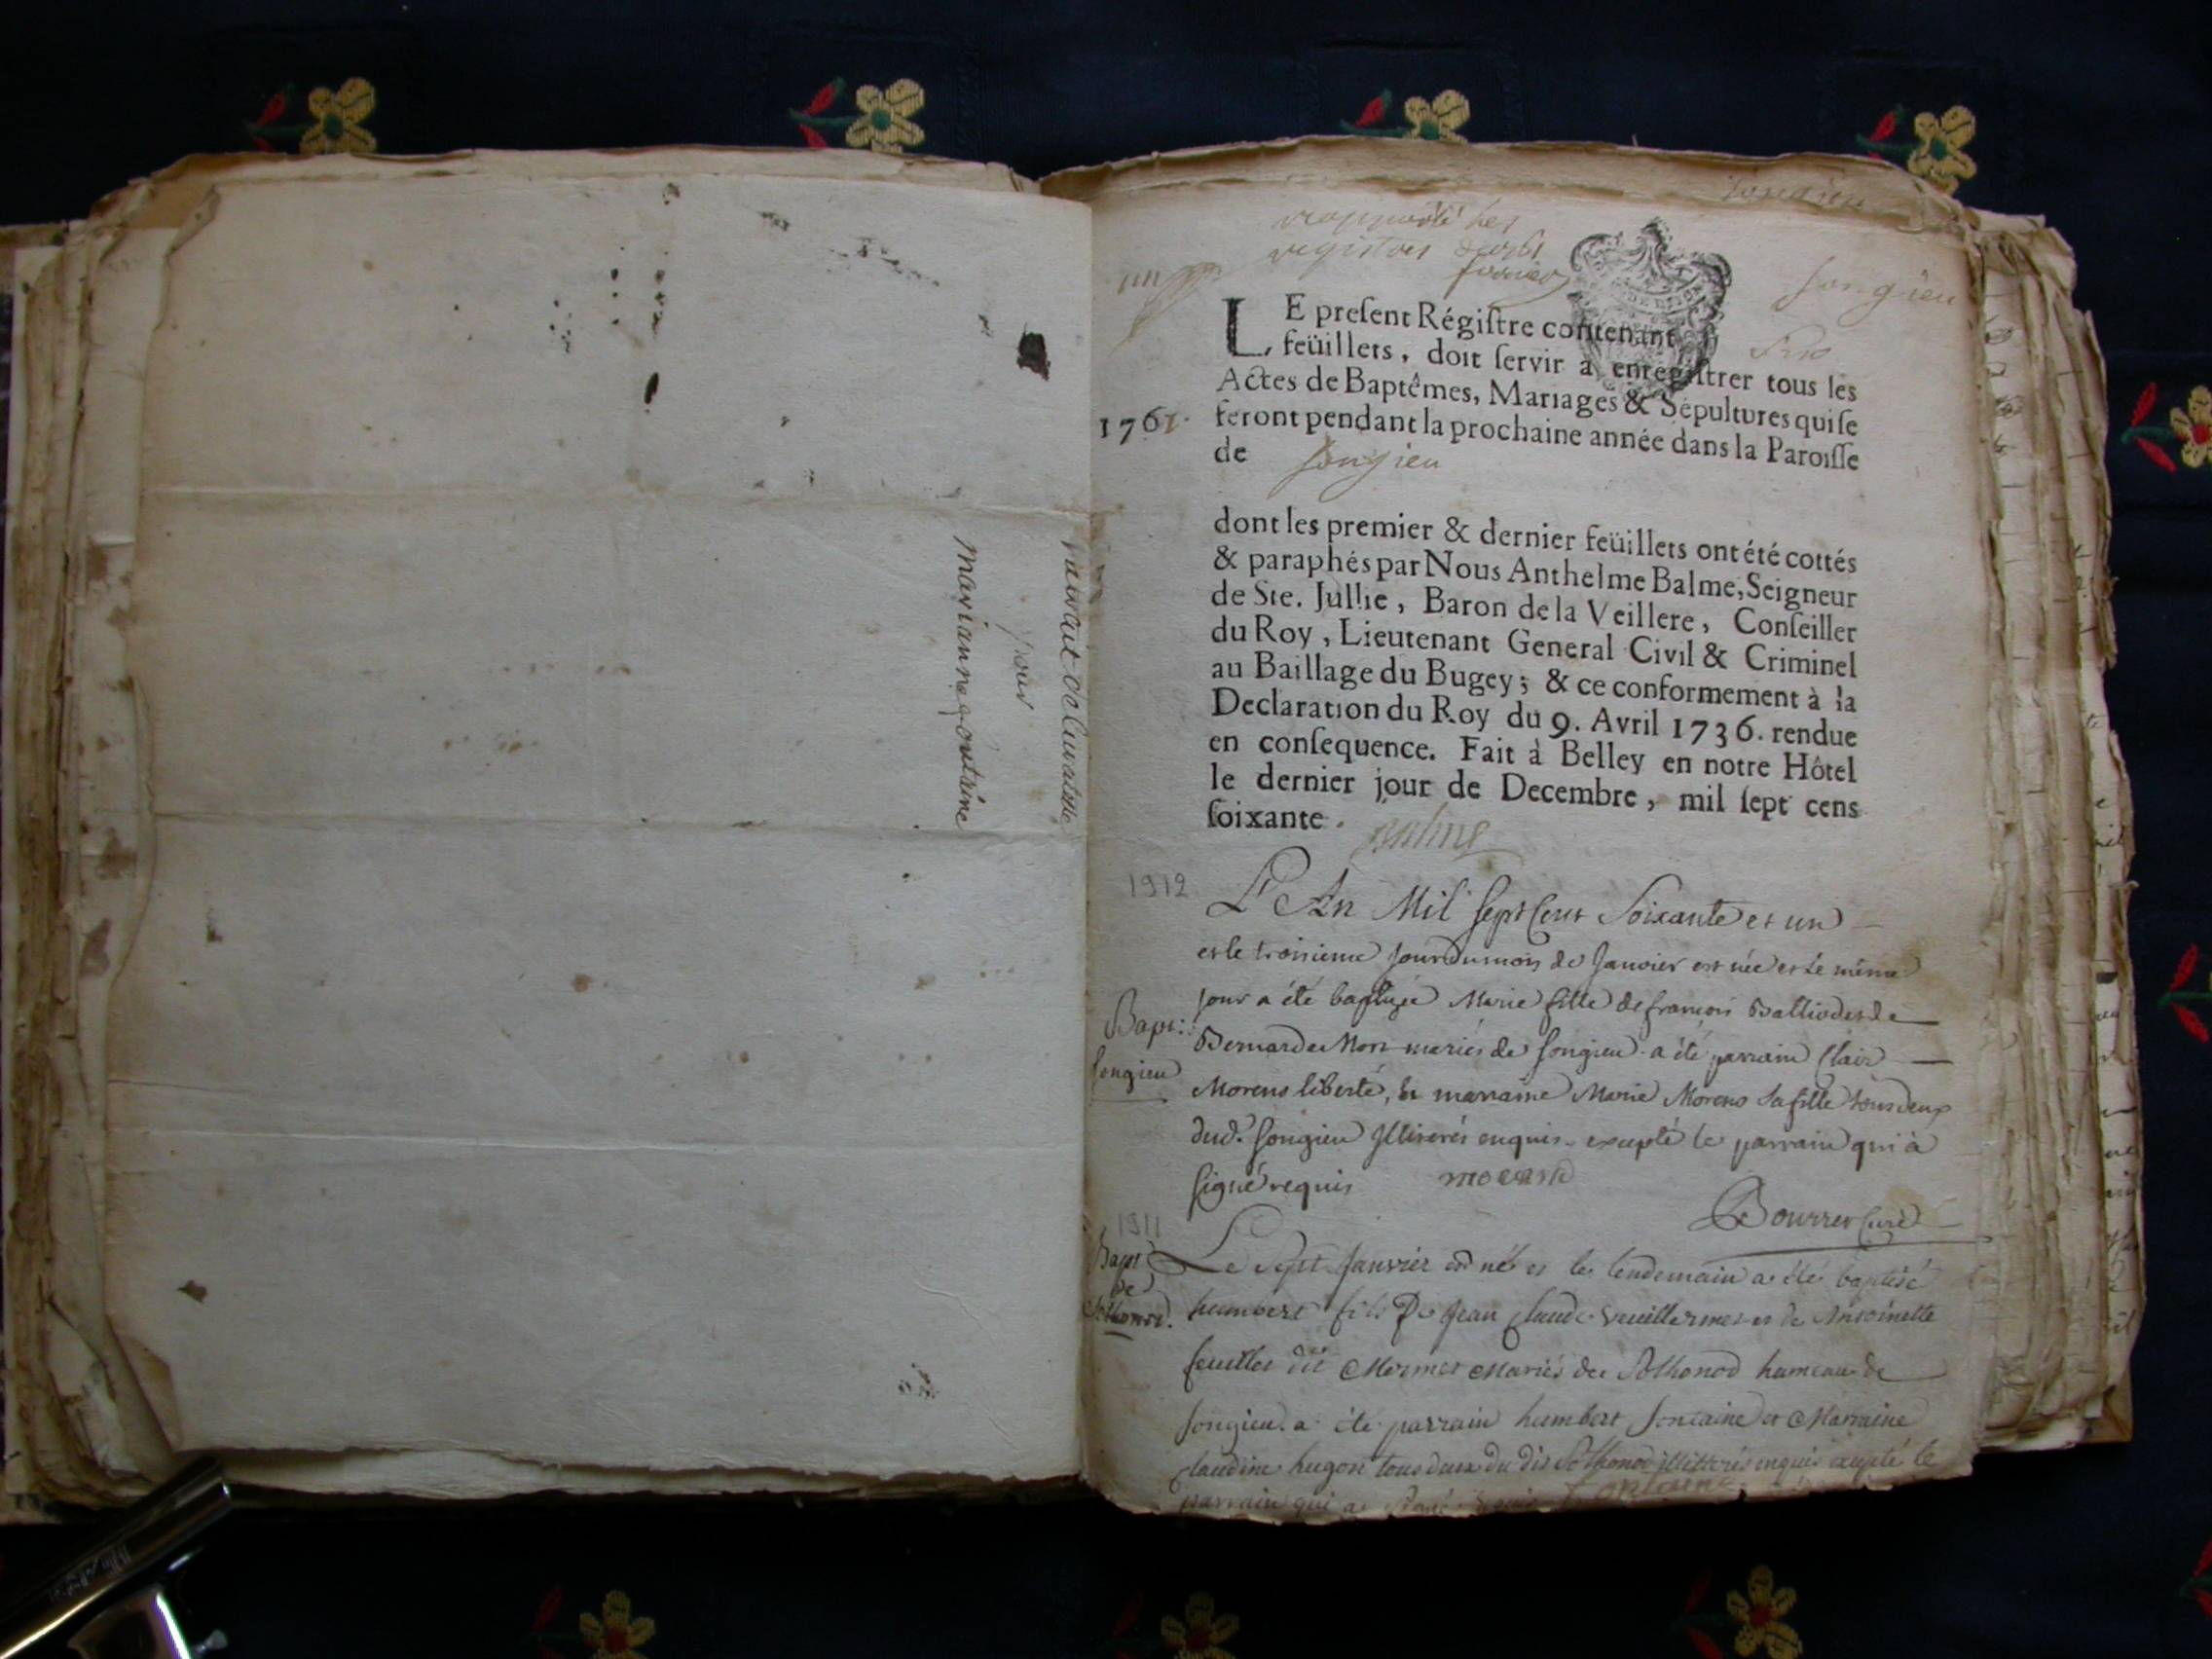 mariannegoutrine
pour
Songieu
registres de 1761
Songieu
LE preſent Régiſtre contenant
feüillets, doit ſervir à enregiſtrer tous les
Actes de Baptêmes, Mariages & Sépultures qui ſe
1761. feront pendant la prochaine année dans la Paroiſſe
de Songieu
dont les premier & dernier feüillets ont été cottés
& paraphés par Nous Anthelme Balme, Seigneur
de Ste. Jullie, Baron de la Veillere, Conſeiller
du Roy, Lieutenant General Civil & Criminel
au Baillage du Bugey; & ce conformement à la
Declaration du Roy du 9. Avril 1736. rendue
en conſequence. Fait à Belley en notre Hôtel
le dernier jour de Decembre, mil ſept cens
ſoixante. Balme
1912
L'An Mil Sept Cent Soixante et un
et le troisieme jour du mois de Janvier est née et le même
jour a été baptizée Marie fille de françois et de
Bapt:
Songieu
mariés de Songieu a été parrain Clair
liberté, et marraine Marie sa fille tous deux
dud. Songieu Illiterés enquis excepté le parrain qui à
signé requis
Bourret Curé
1911
Bapt
de
Sothonod.
Le Sept Janvier est né et le lendemain a été baptisé
humbert fils De Jean Claude Vuillermet et de Antoinette
dit Mermet Mariés de Sothonod hameau de
Songieu. a été parrain humbert fontaine et Marraine
Claudine hugon tous deux du dit Sothonod illitterés enquis excepté le
parrain qui a signé requis fontaine